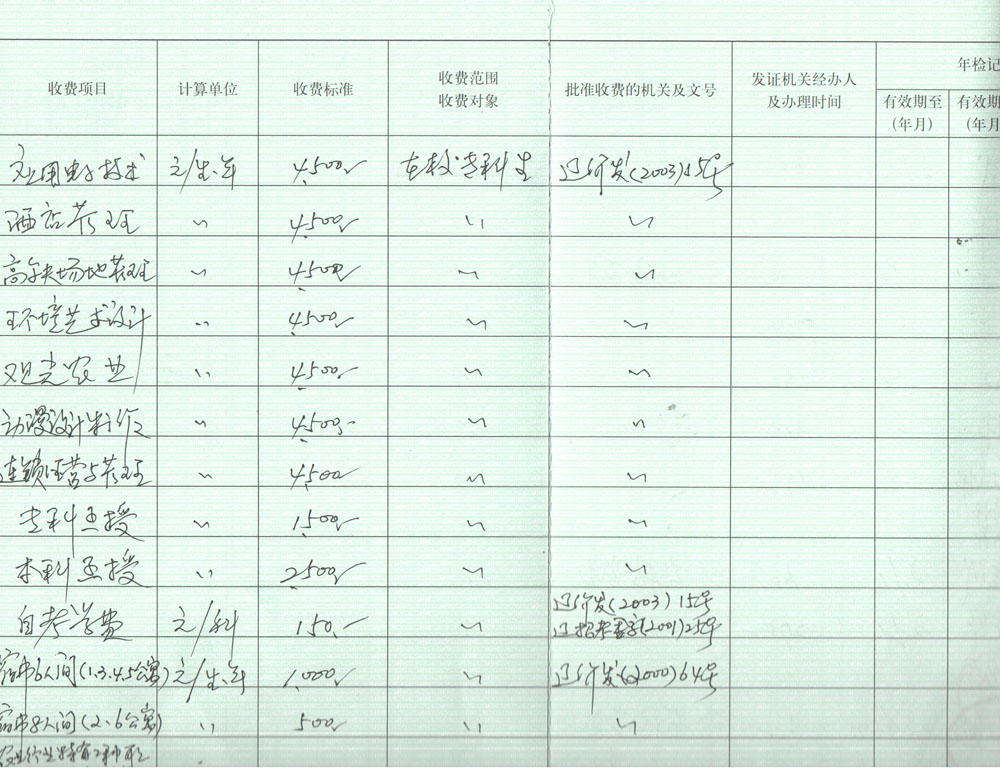 收费项目 计算单位 收费标准 收费范围 收费对象 批准收费的机关及文号 发证机关经办人 及办理时间 年检记
有效期至 (年月) 有效期 (年月
应用电子技术 元/生.年 4500 在校专科生 辽价发(2003)15号
酒店管理 〃 4500 〃 〃
高尔夫场地管理 〃 4500 〃 〃
环境艺术设计 〃 4500 〃 〃
观光农业 〃 4500 〃 〃
动漫设计制作 〃 4500 〃 〃
连锁经营与管理 〃 4500 〃 〃
专科函授 〃 1500 〃 〃
本科函授 〃 2500 〃 〃
自考学费 元/科 150 〃 辽价发(2003)15号
(2001)25号
宿费6人间(1.3.4.5公寓) 元/生.年 1000 〃 辽价发(2000)64号
宿费8人间(2.6公寓) 〃 500 〃 〃